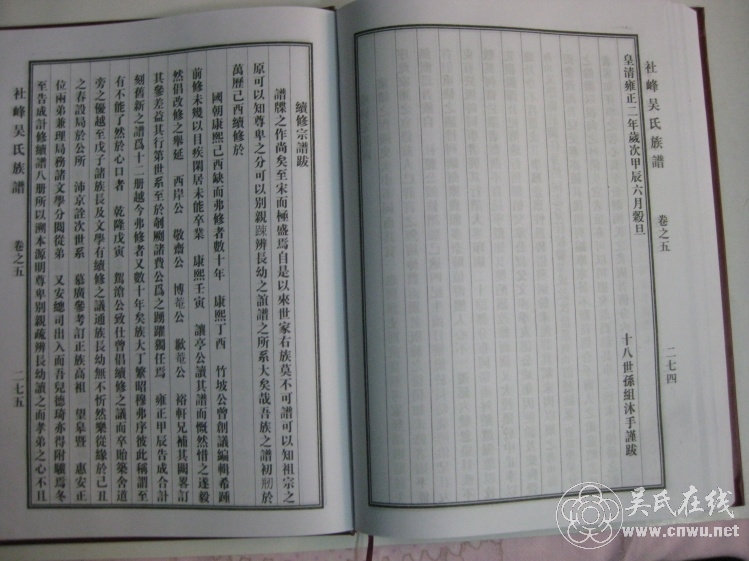 社峰吴氏族譜 卷之五 二七四
皇清雍正二年歲次甲辰六月穀旦
十八世孫組沐手謹跋
續修宗譜跋
譜牒之作尚矣至宋而極盛焉自是以來世家右族莫不可譜可以知祖宗之
原可以知尊卑之分可以別親疎辨長幼之誼譜之所系大矣哉吾族之譜初剏於
萬歷己酉續修於
國朝康熙己酉缺而弗修者數十年 康熙丁酉 竹坡公曾創議編輯希踵
前修未幾以目疾閑居未能卒業 康熙壬寅 讓亭公讀其譜而慨然惜之遂毅
然倡改修之舉延 西岸公 敬齋公 博菴公 歉菴公 裕軒兄補其闕畧訂
其參差益其行第世系至於剞劂諸費公為之踴躍獨任焉 雍正甲辰告成合計
刻舊新之譜爲十二册越今弗修者又數十年矣族大丁繁昭穆弗序彼此稱謂至
有不能了然於心口者 乾隆戊寅 駕滄公致仕曾倡續修之議而卒貽築舍道
旁之優越至戊子諸族長及文學有續修之議通族長幼無不忻然樂從緣於己丑
之春設局於公所 沛京詮次世系 慕廣參考訂正族高祖 望皋暨 惠安正
位兩弟兼理局務諸文學分閱從弟 又安總司出入而吾兒德琦亦得附驥焉冬
至告成計修續譜八册所以溯本源明尊卑別親疏辨長幼讀之而孝弟之心不且
社峰吴氏族譜 卷之五 二七五
吴氏在线
www.cnwu.net